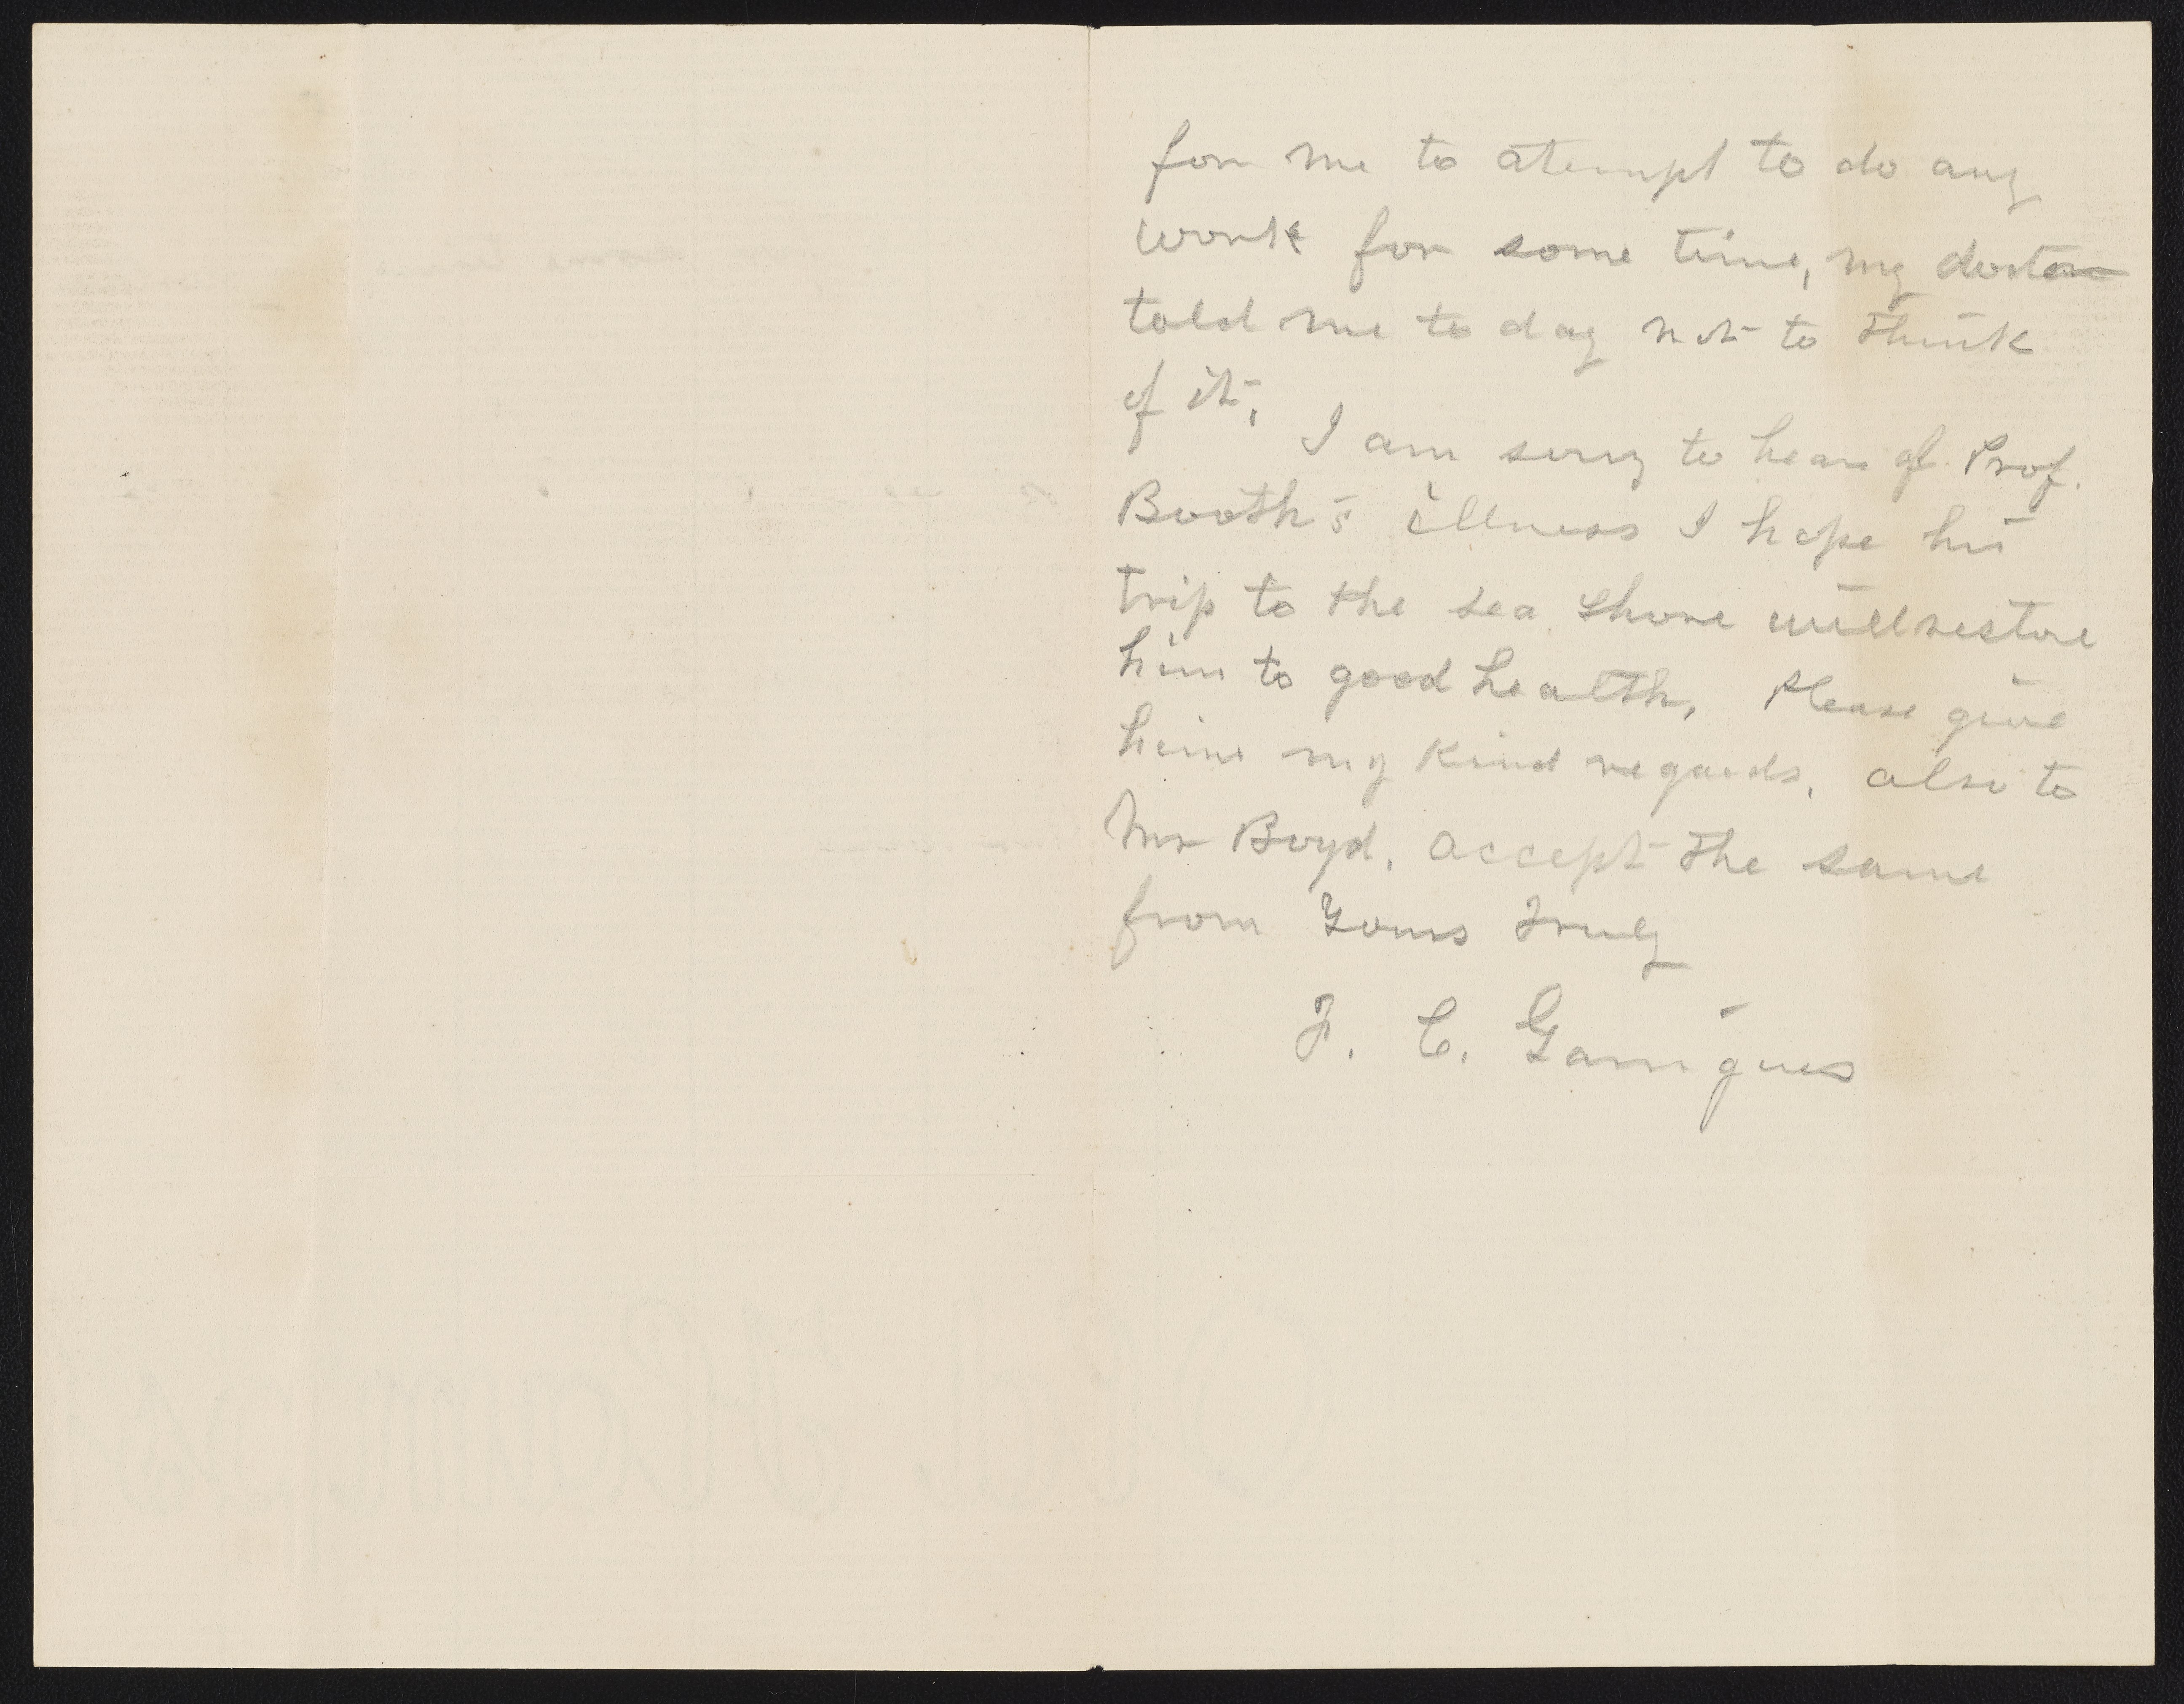 for me to atempt to do any
work for some time, my doctor
told me to day not to think
of it,
I am sorry to hear of Prof.
Booth's illness I hope his
trip to the sea shore will restore
him to good health, Please give
him my kind regards, also to
Mr Boyd, accept the same
from Yours Truly
F. C. Garrigues